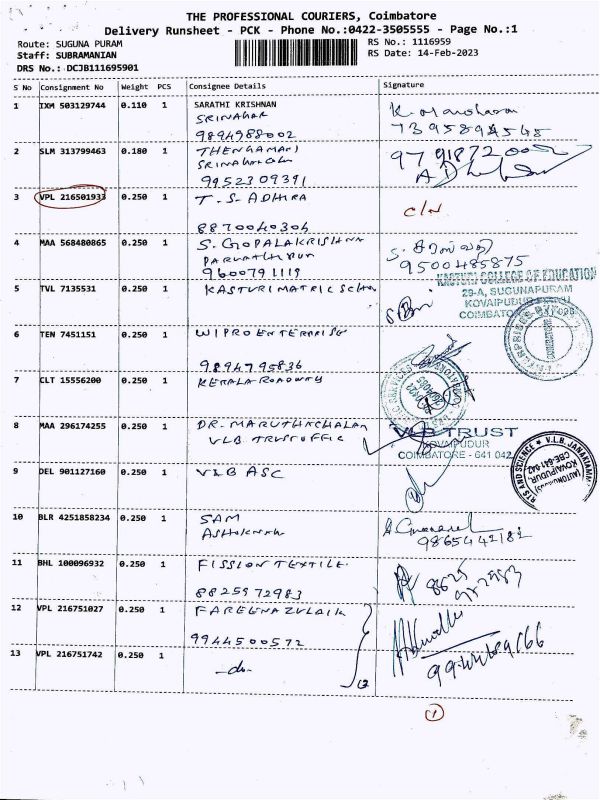 THE PROFESSIONAL COURIERS, Coimbatore
Delivery Runsheet - PCK - Phone No.:0422-3505555 - Page No.:1
Route: SUGUNA PURAM
RS No.: 1116959
Staff: SUBRAMANIAN
RS Date: 14-Feb-2023
DRS No.: DCJB111695901
S No Consignment No Weight PCS Consignee Details Signature
1 IXM 503129744 0.110 1 SARATHI KRISHNAN
SRINAGAR
9894988002
7395894545
2 SLM 313799463 0.180 1 THENGAMANI
9952309391
3 VPL 216501933 0.250 1 T. S. ADHIRA
C/N
8870040304
4 MAA 568480865 0.250 1 S. GOPALAKRISHNA
9600791119
9500485875
5 TVL 7135531 0.250 1 KASTURI MATRIC
KASTURI COLLEGE OF EDUCATION
29-A, SUGUNAPURAM
KOVAIPUDUR
6 TEN 7451151 0.250 1 WIPRO ENTERPRISE
9894795836
7 CLT 15556200 0.250 1 KERALA ROADWAY
8 MAA 296174255 0.250 1 DR. MARUTHACHALAM
VLB TRUST OFFIC
VLB TRUST
KOVAIPUDUR
COIMBATORE - 641 042
9 DEL 901127160 0.250 1 VLB ASC
V.L.B. JANAKIAMM
ARTS AND SCIENCE
(AUTONOMOUS)
KOVAIPUDUR,
CBE-641 042
10 BLR 4251858234 0.250 1 SAM
11 BHL 100096932 0.250 1 FISSION TEXTILE
8825972983
12 VPL 216751027 0.250 1 FAREENA ZULAIK
9944500572
13 VPL 216751742 0.250 1 -do-
12
1